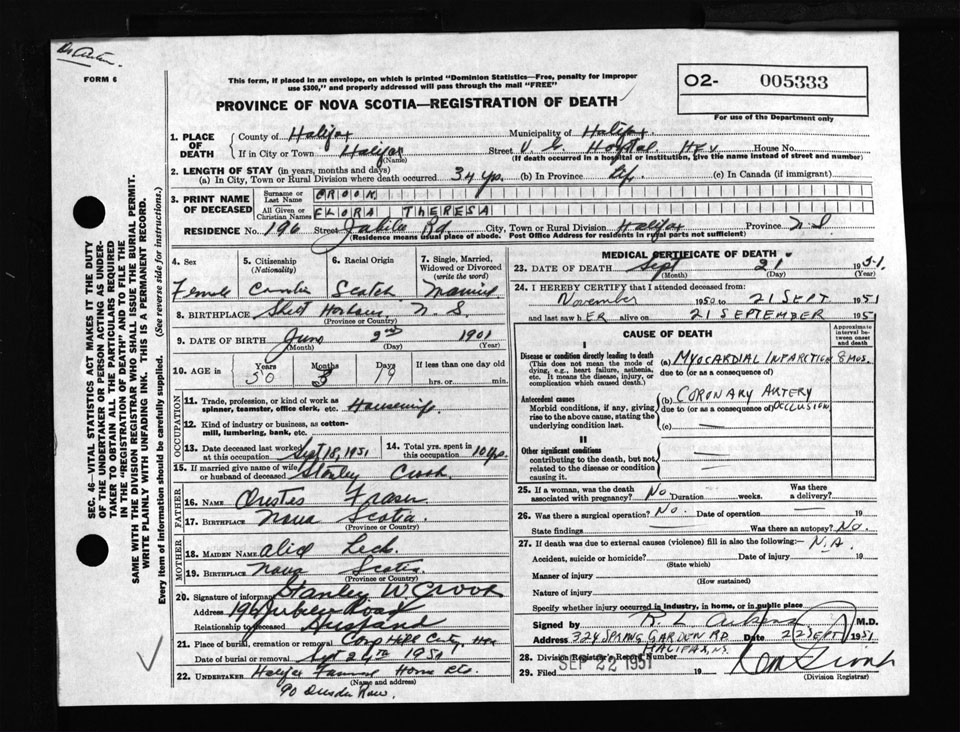 FORM 6
This form, if placed in an envelope, on which is printed "Dominion Statistics—Free, penalty for improper
use $300," and properly addressed will pass through the mail "FREE"
O2- 005333
For use of the Department only
PROVINCE OF NOVA SCOTIA—REGISTRATION OF DEATH
1. PLACE OF DEATH
County of Halifax Municipality of Halifax
If in City or Town Halifax (Name) Street V. G. Hospital Hfx House No.
(If death occurred in a hospital or institution, give the name instead of street and number)
2. LENGTH OF STAY (in years, months and days)
(a) In City, Town or Rural Division where death occurred 34 yrs. (b) In Province Life (c) In Canada (if immigrant)
3. PRINT NAME OF DECEASED
Surname or Last Name CROOK
All Given or Christian Names FLORA THERESA
RESIDENCE No. 196 Street Jubilee Rd. City, Town or Rural Division Halifax Province N.S.
(Residence means usual place of abode. Post Office Address for residents in rural parts not sufficient)
4. Sex
Female
5. Citizenship (Nationality)
6. Racial Origin
Scotch
7. Single, Married, Widowed or Divorced (write the word)
Married
8. BIRTHPLACE N. S.
(Province or Country)
9. DATE OF BIRTH June 2nd 1901
(Month) (Day) (Year)
10. AGE in Years 50 Months 3 Days 19 If less than one day old
hrs. or min.
OCCUPATION
11. Trade, profession, or kind of work as
spinner, teamster, office clerk, etc. Housewife
12. Kind of industry or business, as cotton-
mill, lumbering, bank, etc.
13. Date deceased last worked at this occupation Sept 18, 1951
14. Total yrs. spent in this occupation 10 yrs.
15. If married give name of wife or husband of deceased Stanley Crook
FATHER
16. NAME Orestes Fraser
17. BIRTHPLACE Nova Scotia
(Province or Country)
MOTHER
18. MAIDEN NAME Alice
19. BIRTHPLACE Nova Scotia
(Province or Country)
20. Signature of informant Stanley W. Crook
Address 196 Jubilee Road
Relationship to deceased Husband
21. Place of burial, cremation or removal
Date of burial or removal Sept 24th 1951
22. UNDERTAKER Halifax Funeral Home
(Name and address)
90
MEDICAL CERTIFICATE OF DEATH
23. DATE OF DEATH Sept 21 1951
(Month) (Day)
24. I HEREBY CERTIFY that I attended deceased from:
November 1950 to 21 SEPT 1951
and last saw h ER alive on 21 SEPTEMBER 1951
CAUSE OF DEATH
Approximate interval between onset and death
I
Disease or condition directly leading to death
(This does not mean the mode of dying, e.g., heart failure, asthenia, etc. It means the disease, injury, or complication which caused death.)
(a) MYOCARDIAL INFARCTION 8 MOS.
due to (or as a consequence of)
Antecedent causes
Morbid conditions, if any, giving rise to the above cause, stating the underlying condition last.
(b) CORONARY ARTERY
due to (or as a consequence of) OCCLUSION
(c)
II
Other significant conditions
contributing to the death, but not related to the disease or condition causing it.
25. If a woman, was the death associated with pregnancy? No Duration weeks. Was there a delivery?
26. Was there a surgical operation? No. Date of operation 19
State findings Was there an autopsy? No.
27. If death was due to external causes (violence) fill in also the following:— N.A.
Accident, suicide or homicide? Date of injury 19
(State which)
Manner of injury
(How sustained)
Nature of injury
Specify whether injury occurred in industry, in home, or in public place
Signed by R. L. M.D.
Address 324 SPRING GARDEN RD. Date 22 SEPT 1951
HALIFAX, N.S.
28. Division Registrar's Record Number
SEP 22 1951
29. Filed 19
(Division Registrar)
SEC. 46—VITAL STATISTICS ACT MAKES IT THE DUTY
OF THE UNDERTAKER OR PERSON ACTING AS UNDER-
TAKER TO OBTAIN ALL THE PARTICULARS REQUIRED
IN THE "REGISTRATION OF DEATH" AND TO FILE THE
SAME WITH THE DIVISION REGISTRAR WHO SHALL ISSUE THE BURIAL PERMIT.
WRITE PLAINLY WITH UNFADING INK. THIS IS A PERMANENT RECORD.
Every item of information should be carefully supplied. (See reverse side for instructions.)